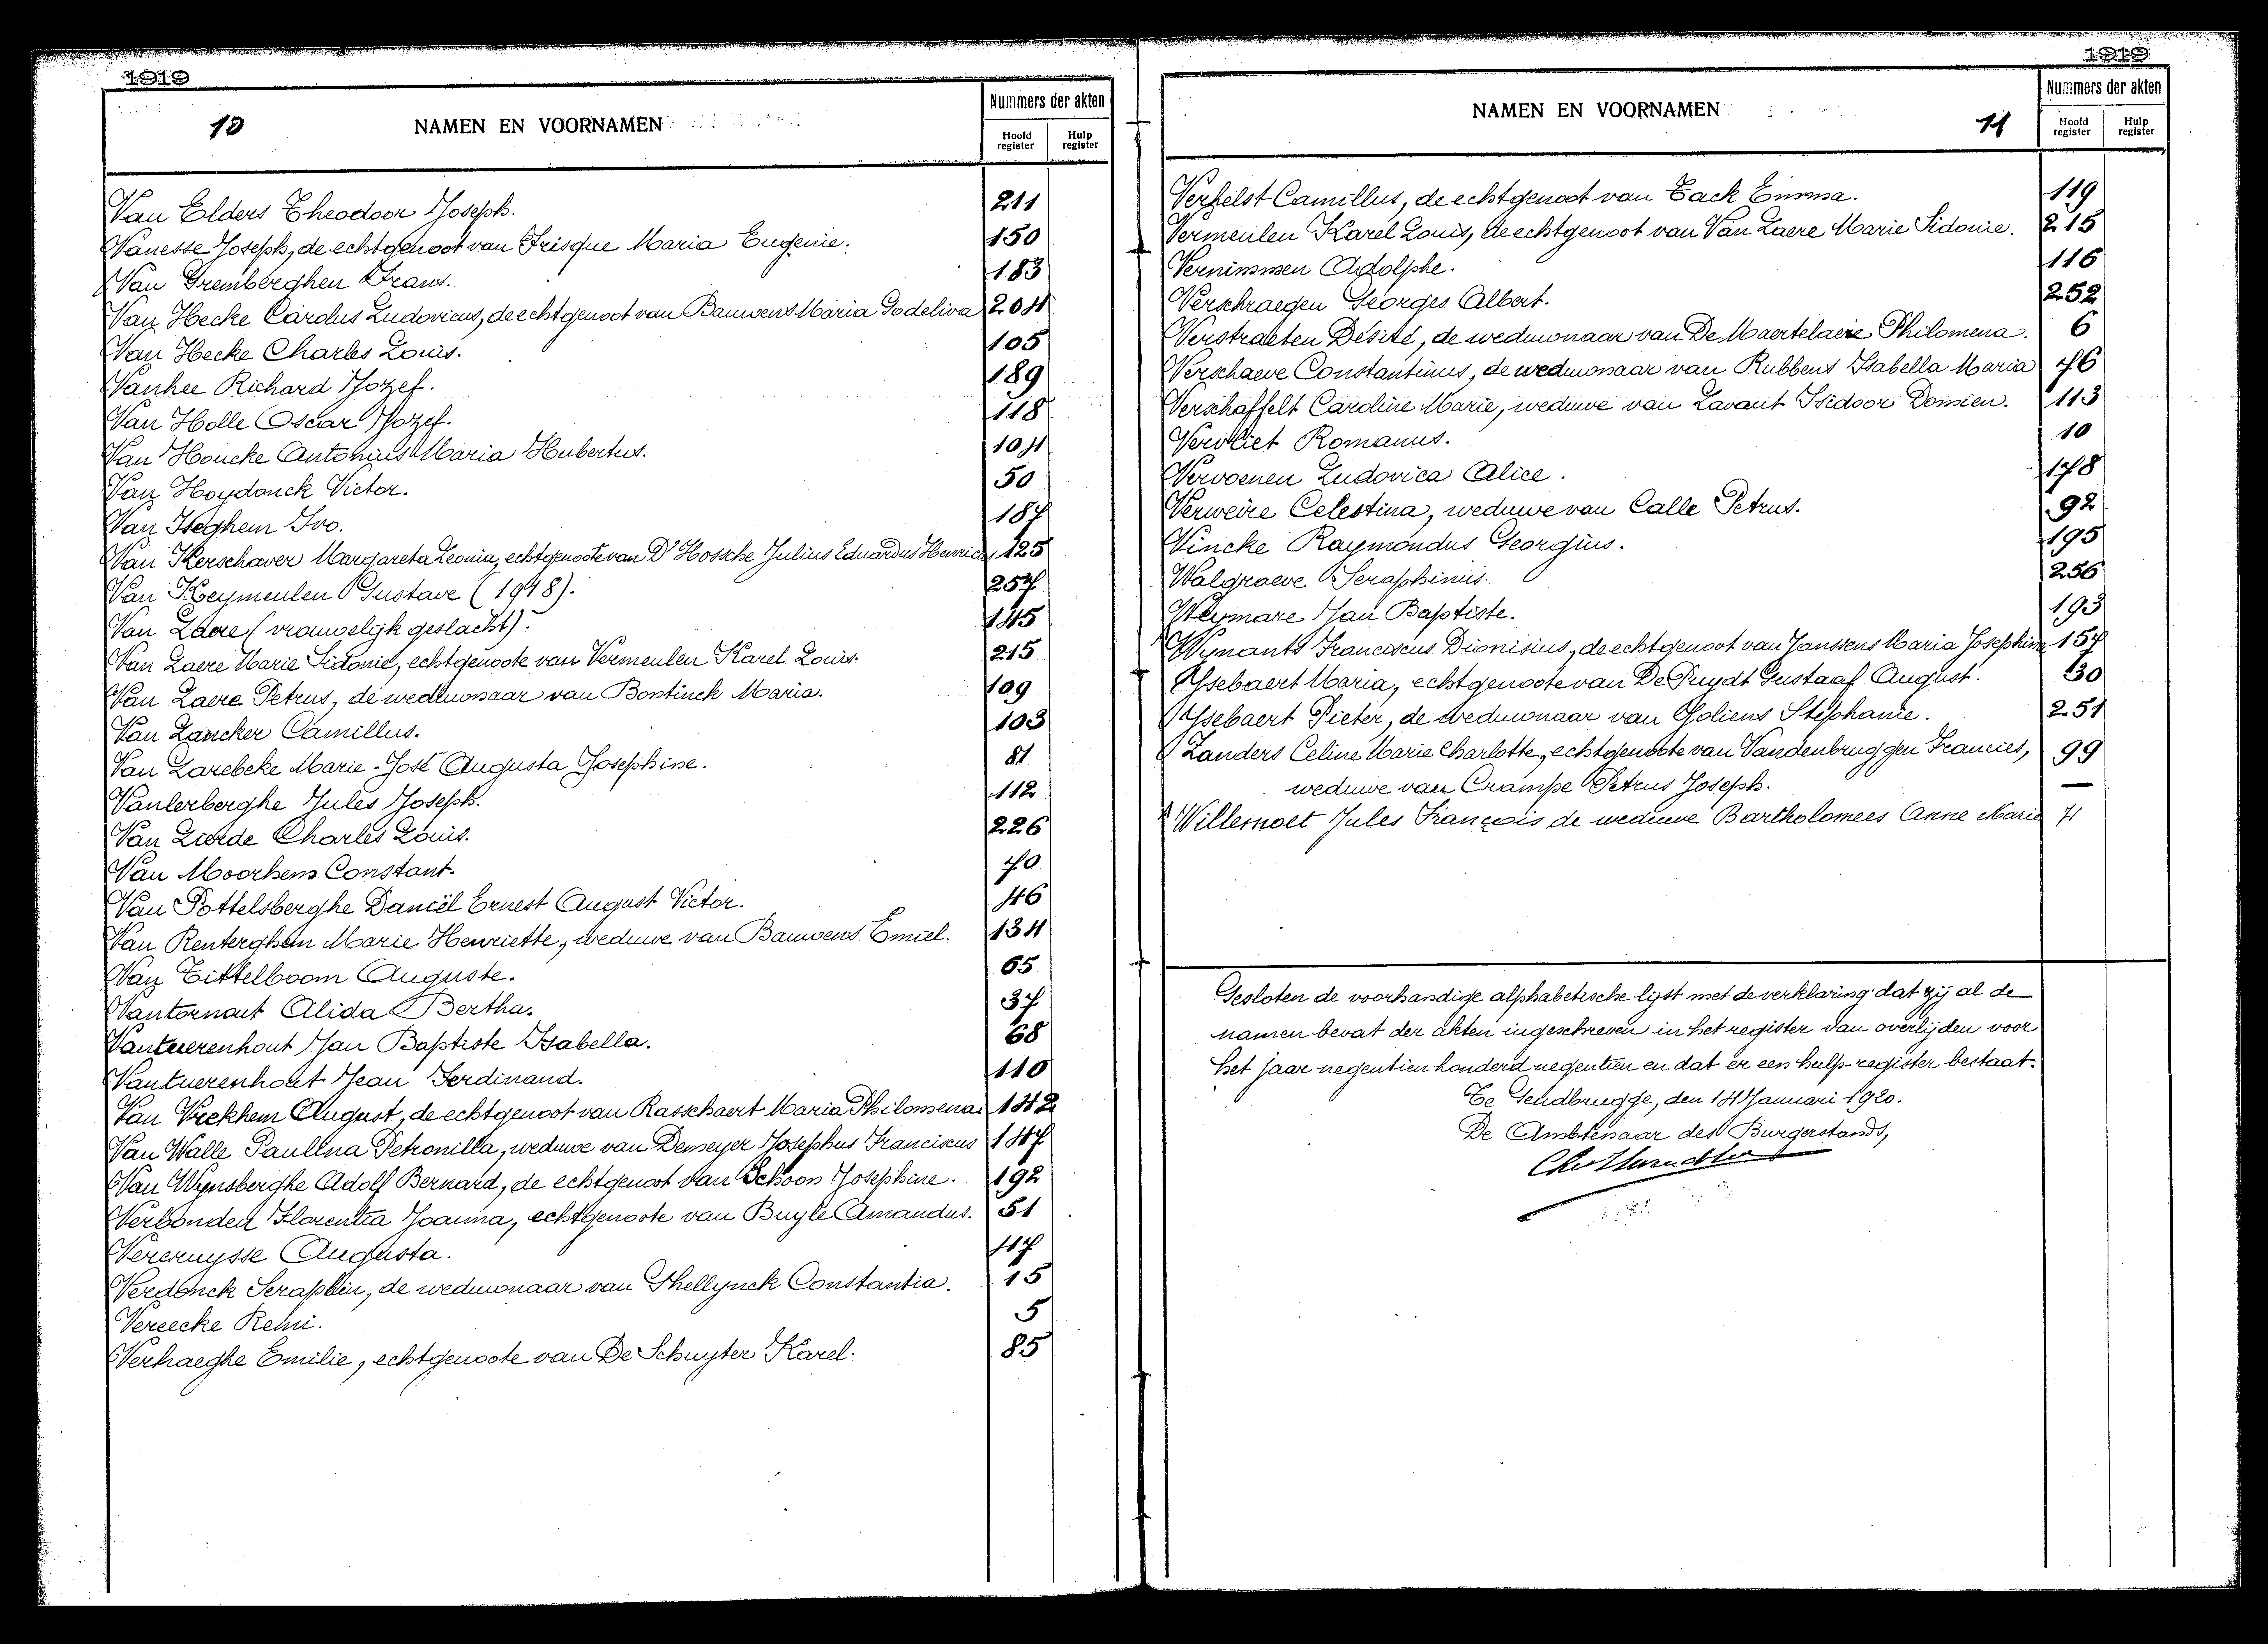 1919
10
NAMEN EN VOORNAMEN
Nummers der akten
Hoofd register
Hulp register
Van Elders Theodoor Joseph. 211
Vanesse Joseph, de echtgenoot van Frisque Maria Eugenie. 150
Van Gremberghen Frans. 183
Van Hecke Carolus Ludovicus, de echtgenoot van Bauwens Maria Godeliva 204
Van Hecke Charles Louis. 105
Vanhee Richard Jozef. 189
Van Holle Oscar Jozef. 118
Van Houcke Antonius Maria Hubertus. 104
Van Hoydonck Victor. 50
Van Iseghem Ivo. 187
Van Kerschaver Margareta Leonia, echtgenoote van D'Hossche Julius Eduardus Henricus 125
Van Keymeulen Gustave (1918). 257
Van Laere (vrouwelijk geslacht). 145
Van Laere Marie Sidonie, echtgenoote van Vermeulen Karel Louis. 215
Van Laere Petrus, de weduwnaar van Bontinck Maria. 109
Van Lancker Camillus. 103
Van Larebeke Marie-José Augusta Josephine. 81
Vanlerberghe Jules Joseph. 112
Van Lierde Charles Louis. 226
Van Moorhem Constant. 70
Van Pottelsberghe Daniël Ernest August Victor. 46
Van Renterghem Marie Henriette, weduwe van Bauwens Emiel. 134
Van Tittelboom Auguste. 65
Vantornout Alida Bertha. 37
Vantuerenhout Jan Baptiste Isabella. 68
Vantuerenhout Jean Ferdinand. 110
Van Vrekhem August, de echtgenoot van Rasschaert Maria Philomena 142
Van Walle Paulina Petronilla, weduwe van Demeyer Josephus Franciscus 147
Van Wynsberghe Adolf Bernard, de echtgenoot van Schoon Josephine. 192
Verbonden Florentia Joanna, echtgenoote van Buyle Amandus. 51
Vercruysse Augusta. 47
Verdonck Seraphin, de weduwnaar van Ghellynck Constantia. 15
Vereecke Remi. 5
Verhaeghe Emilie, echtgenoote van De Schuyter Karel. 85
1919
NAMEN EN VOORNAMEN
11
Nummers der akten
Hoofd register
Hulp register
Verhelst Camillus, de echtgenoot van Tack Emma. 119
Vermeulen Karel Louis, de echtgenoot van Van Laere Marie Sidonie. 215
Vernimmen Adolphe. 116
Verschraegen Georges Albert. 252
Verstraeten Désiré, de weduwnaar van De Maertelaere Philomena. 6
Verschaeve Constantinus, de weduwnaar van Rubbens Isabella Maria 76
Verschaffelt Caroline Marie, weduwe van Lavaut Isidoor Domien. 113
Vervliet Romanus. 10
Vervoenen Ludovica Alice. 178
Verweire Celestina, weduwe van Calle Petrus. 92
Vincke Raymondus Georgius. 195
Walgraeve Seraphinus. 256
Weymare Jan Baptiste. 193
Wynants Franciscus Dionisius, de echtgenoot van Janssens Maria Josephine 157
Ysebaert Maria, echtgenoote van De Puydt Gustaaf August. 130
Ysebaert Pieter, de weduwnaar van Goliens Stephanie. 251
Zanders Celine Marie Charlotte, echtgenoote van Vandenbruggen Francies, 99
weduwe van Crampe Petrus Joseph. —
Willemoet Jules François de weduwe Bartholomees Anne Marie 71
Gesloten de voorhandige alphabetische lijst met de verklaring dat zij al de
namen bevat der akten ingeschreven in het register van overlijden voor
het jaar negentien honderd negentien en dat er een hulp-register bestaat.
Te Gendbrugge, den 14 Januari 1920.
De Ambtenaar des Burgerstands,